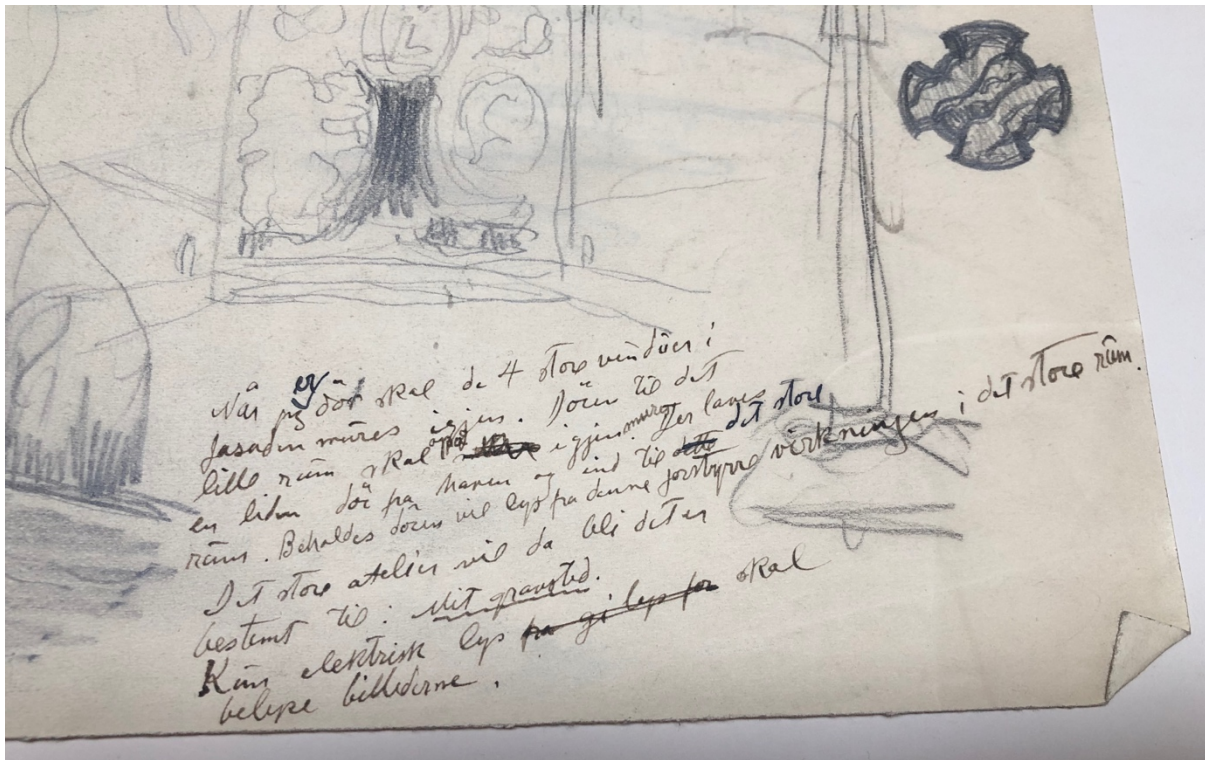 Når jeg dör skal de 4 store vindüer i
fasaden müres igjen. Dören til det
lille rüm skal også igjenmures. Der laves
en liden dör fra haven og ind til dette det store
rüm. Beholdes dören vil lys fra denne forstyrre virkningen i det store rüm.
Det store atelier vil da bli det er
bestemt til: Mit gravsted.
Kün elektrisk lys fra gi lys for skal
belyse billederne.